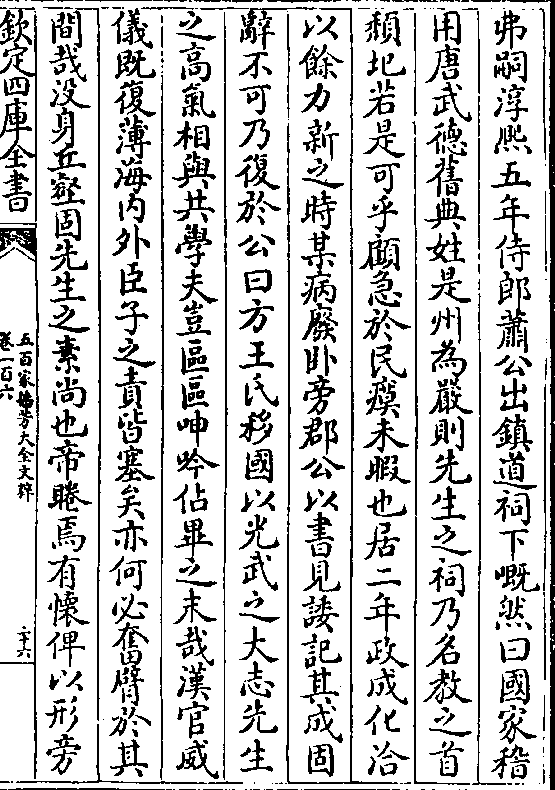 弗嗣淳熙五年侍郎蕭公出鎮道祠下嘅然曰國家稽
用唐武德舊典姓是州為嚴則先生之祠乃名教之首
頹圮若是可乎顧急於民瘼未暇也居二年政成化洽
以餘力新之時某病廢卧旁郡公以書見諉記其成固
辭不可乃復於公曰方王氏移國以光武之大志先生
之高氣相與共學夫豈區區呻吟佔畢之末哉漢官威
儀既復薄海内外臣子之責皆塞矣亦何必奮臂於其
間哉没身丘壑固先生之素尚也帝睠焉有懷俾以形旁
欽定四庫全書
五百家播芳大全文粹
卷一百六
二十六